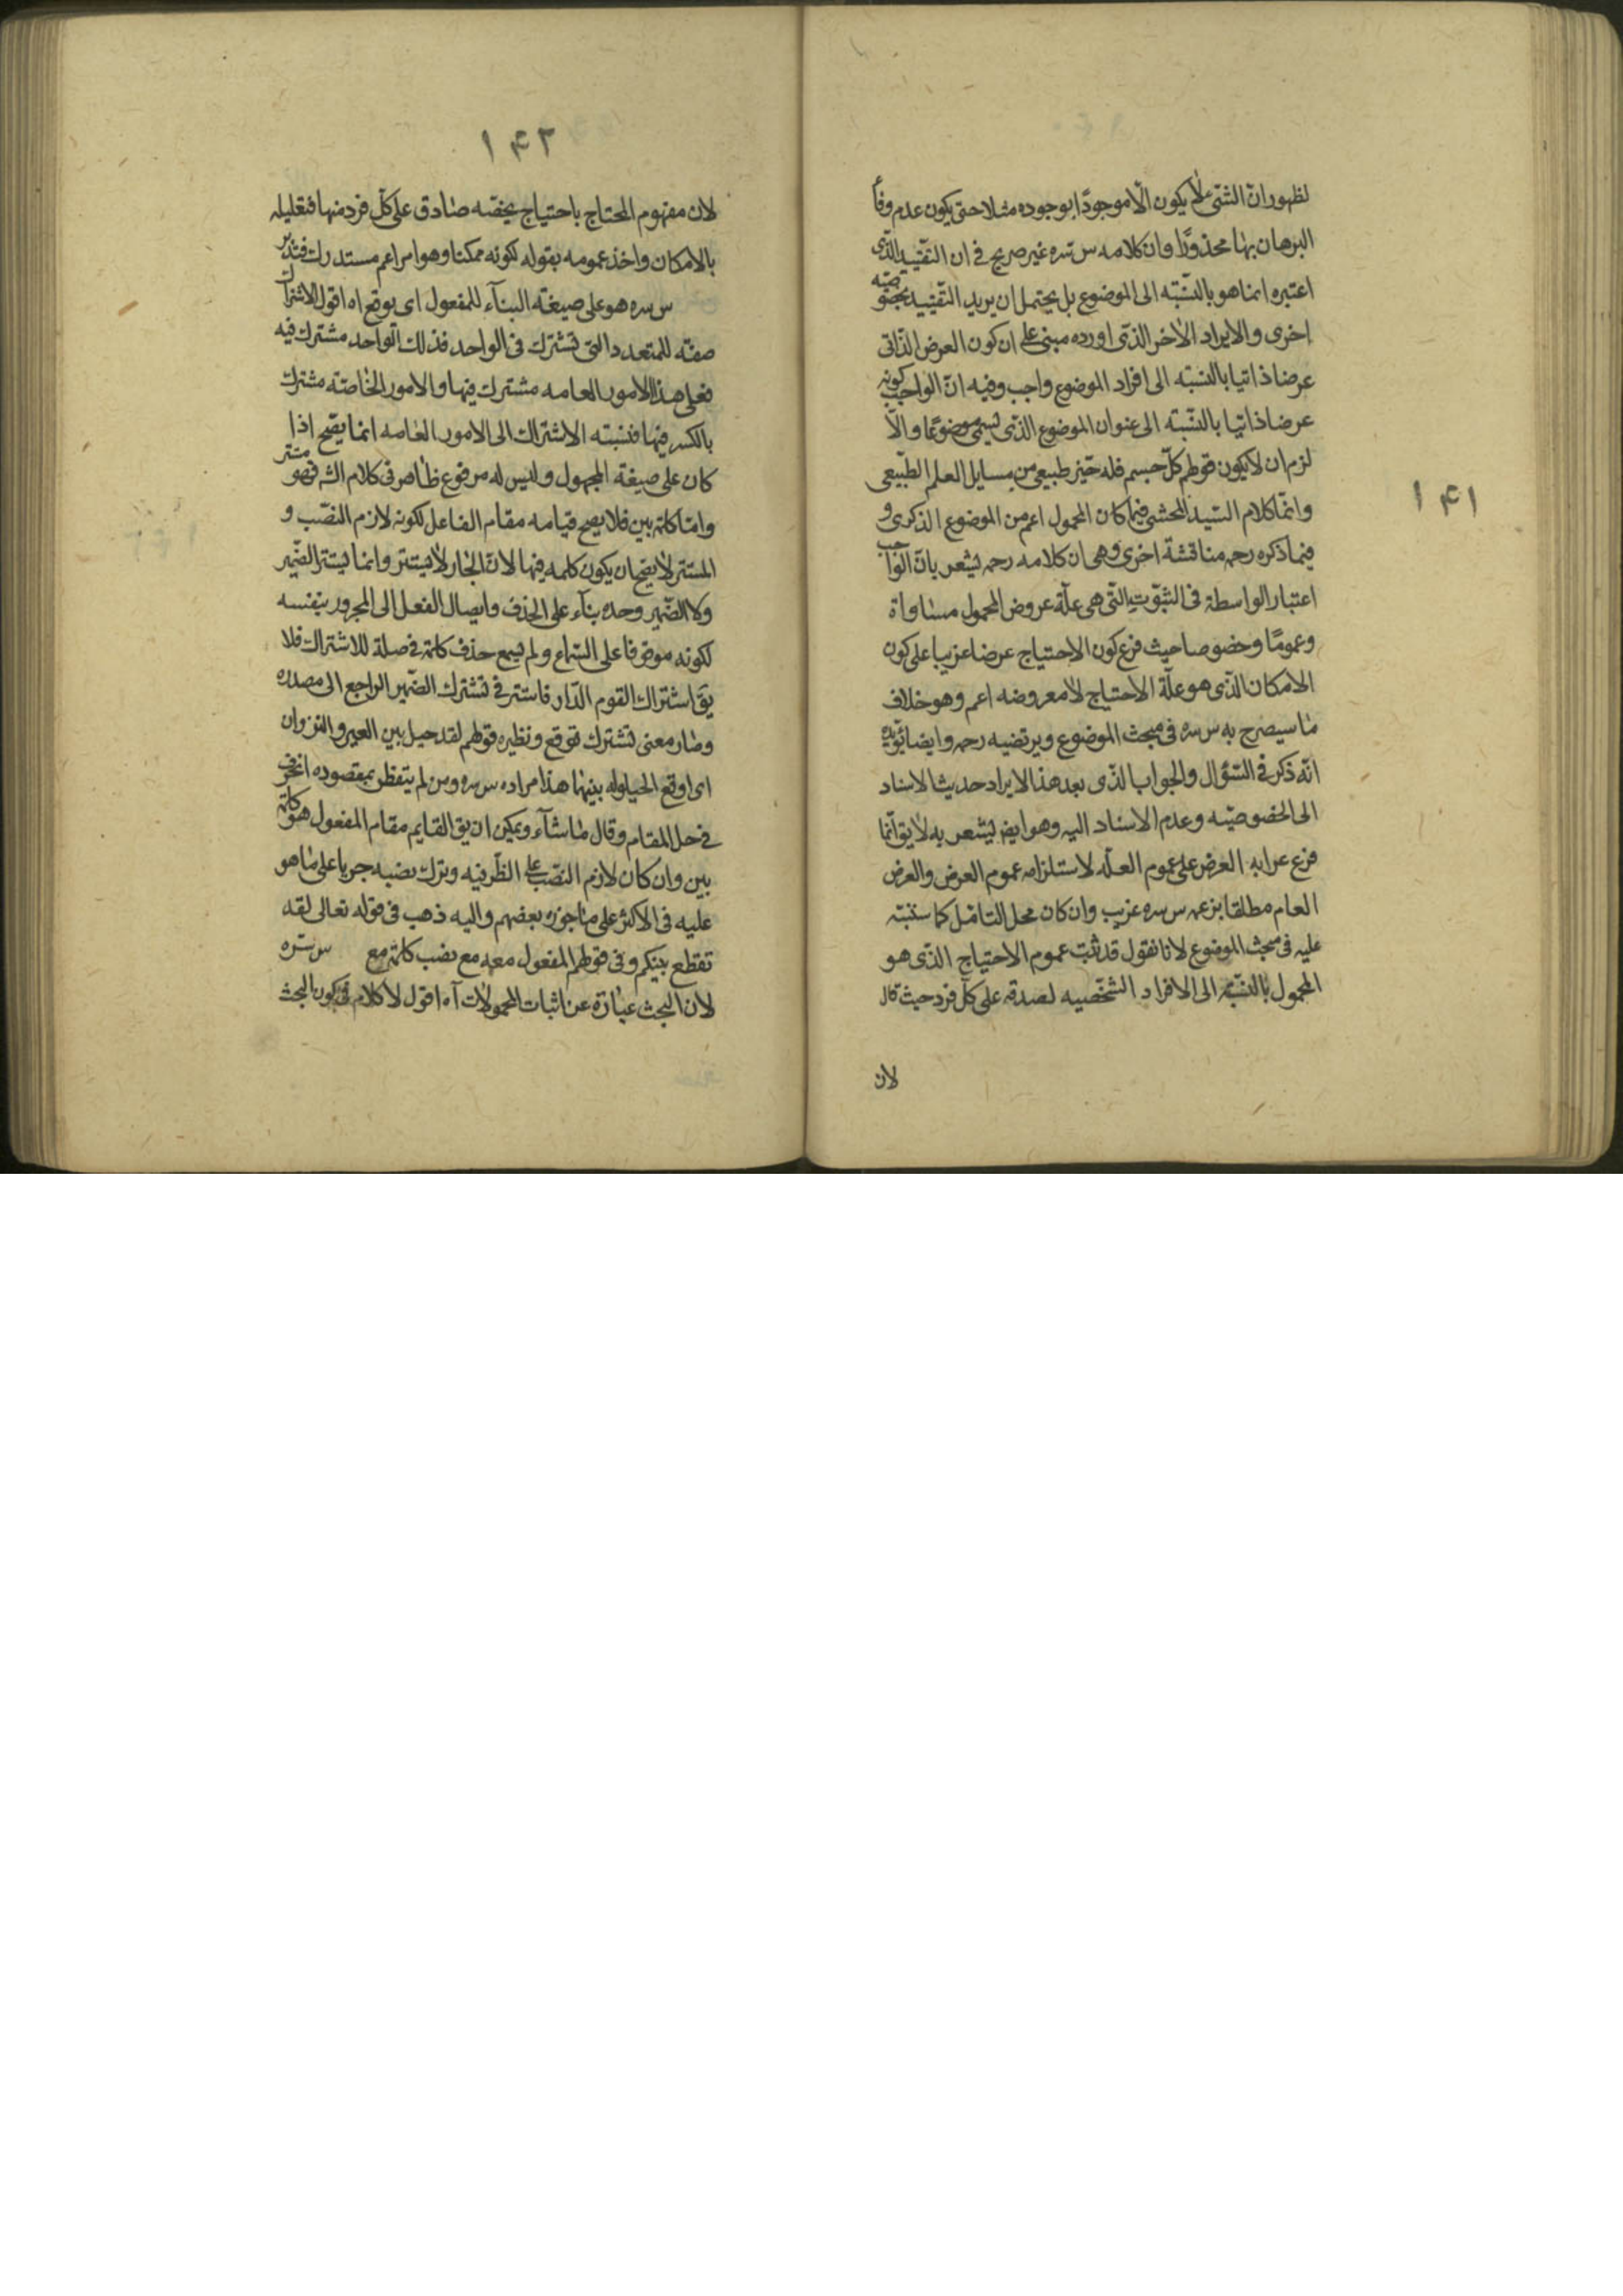 ١٤١
لظهور ان الشئ لا يكون الا موجودا بوجوده مثلا حتى يكون عدم وفا
البرهان بها محذورا وان كلامه س سره غير صريح فى ان التقييد الذى
اعتبره انما هو بالنسبه الى الموضوع بل يحتمل ان يريد التقييد بخصوصيه
اخرى والايراد الاخر الذى اورده مبنى على ان كون العرض الذاتى
عرضا ذاتيا بالنسبه الى افراد الموضوع واجب وفيه ان الواجب كونه
عرضا ذاتيا بالنسبه الى عنوان الموضوع الذى يسمى موضوعا والا
لزم ان لا يكون قولهم كل جسم فله حيز طبيعى من مسايل العلم الطبيعى
وانما كلام السيد المحشى فيما كان المحمول اعم من الموضوع الذكرى و
فيما ذكره رحمه مناقشة اخرى وهى ان كلامه رحمه يشعر بان الواجب
اعتبار الواسطة فى الثبوت التى هى علة عروض المحمول مساواة
وعموما وخصوصا حيث فرع كون الاحتياج عرضا غريبا على كون
الامكان الذى هو علة الاحتياج لا معروضه اعم وهو خلاف
ما سيصرح به س سره فى مبحث الموضوع ويرتضيه رحمه وايضا يؤيده
انه ذكر فى السؤال والجواب الذى بعد هذا الايراد حديث الاسناد
الى الخصوصيه وعدم الاسناد اليه وهو ايض يشعر به لا يق انما
فرع غرابه العرض على عموم العله لاستلزامه عموم العرض والعرض
العام مطلقا بزعمه س سره غريب وان كان محل التامل كما سننبه
عليه فى مبحث الموضوع لانا نقول قد ثبت عموم الاحتياج الذى هو
المحمول بالنسبة الى الافراد الشخصيه لصدقه على كل فرد حيث قال
لان
١٤٢
لان مفهوم المحتاج باحتياج يخصه صادق على كل فرد منها فتعليله
بالامكان واخذ عمومه بقوله لكونه ممكنا وهو امر اعم مستدرك فتدبر
س سره هو على صيغة البناء للمفعول اى يوقع اه اقول الاشتراك
صفة للمتعدد التى تشترك فى الواحد فذلك الواحد مشترك فيه
فعلى هذا الامور العامه مشترك فيها والامور الخاصة مشترك
بالكسر فيها فنسبته الاشتراك الى الامور العامه انما يصح اذا
كان على صيغة المجهول وليس له مرفوع ظاهر فى كلام الش فهو مستتر
واما كلمة بين فلا يصح قيامه مقام الفاعل لكونه لازم النصب و
المستتر لا يصح ان يكون كلمه فيها لان الجار لا يستتر وانما يستتر الضمير
ولا الضمير وحده بناء على الحذف وايصال الفعل الى المجرور بنفسه
لكونه موقوفا على السماع ولم يسمع حذف كلمة فى صلة للاشتراك فلا
يق اشتراك القوم الدار فاستتر فى تشترك الضمير الراجع الى مصدره
وصار معنى تشترك توقع ونظيره قولهم لقد حيل بين العير والنزوان
اى اوقع الحيلوله بينهما هذا مراده س سره ومن لم يتفطن بمقصوده انحرف
فى حل المقام وقال ما شاء ويمكن ان يق القايم مقام المفعول هو كلمة
بين وان كان لازم النصب على الظرفيه وترك نصبه جريا على ما هو
عليه فى الاكثر على ما جوزه بعضهم واليه ذهب فى قوله تعالى لقد
تقطع بينكم وفى قولهم المفعول معه مع نصب كلمة مع س سره
لان البحث عبارة عن اثبات المحمولات آه اقول لا كلام فى كون البحث